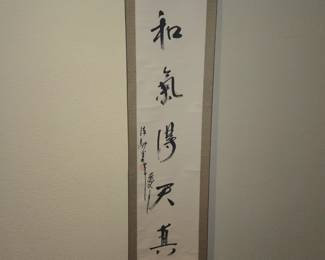 和氣得天真